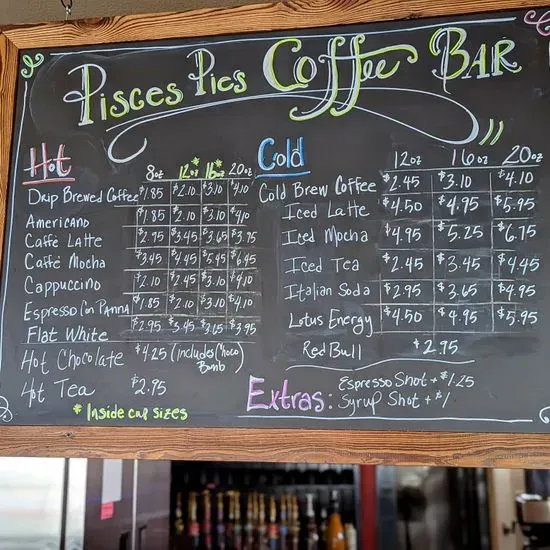 Pisces Pies Coffee Bar
Hot
8oz 12oz* 16oz* 20oz
Drip Brewed Coffee $1.85 $2.10 $3.10 $4.10
Americano $1.85 $2.10 $3.10 $4.10
Caffe Latte $2.75 $3.45 $3.65 $3.75
Caffe Mocha $3.45 $4.45 $5.45 $6.45
Cappuccino $2.10 $2.45 $3.10 $4.10
Espresso Con Panna $1.85 $2.10 $3.10 $4.10
Flat White $2.95 $3.45 $3.65 $3.95
Hot Chocolate $4.25 (includes Choco Bomb)
Hot Tea $2.95
* Inside cup sizes
Cold
12oz 16oz 20oz
Cold Brew Coffee $2.45 $3.10 $4.10
Iced Latte $4.50 $4.95 $5.95
Iced Mocha $4.95 $5.25 $6.75
Iced Tea $2.45 $3.45 $4.45
Italian Soda $2.95 $3.65 $4.95
Lotus Energy $4.50 $4.95 $5.95
Red Bull $2.95
Extras: Espresso Shot + $1.25
Syrup Shot + $1